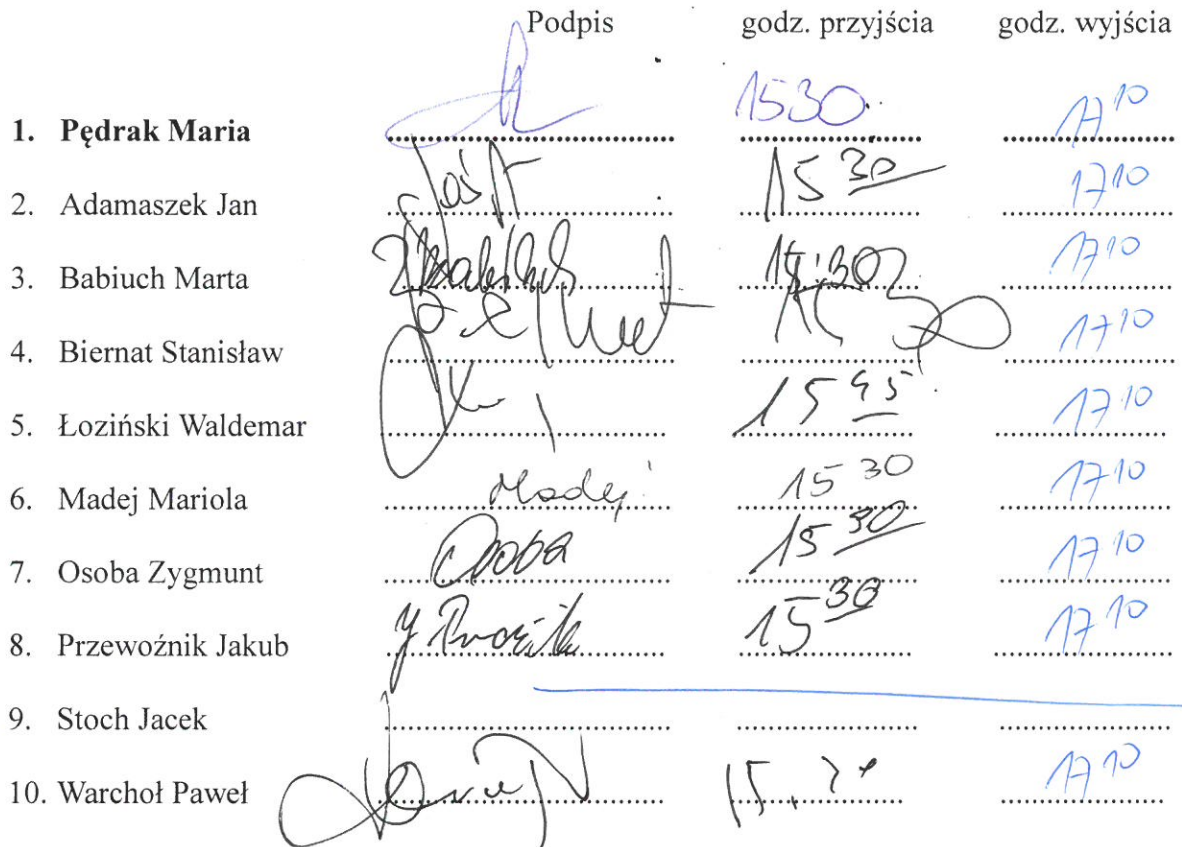 Podpis godz. przyjścia godz. wyjścia
1. Pędrak Maria 1530 17 10
2. Adamaszek Jan 15 30 17 10
3. Babiuch Marta 17 10
4. Biernat Stanisław 17 10
5. Łoziński Waldemar 15 45 17 10
6. Madej Mariola Madej 15 30 17 10
7. Osoba Zygmunt Osoba 15 30 17 10
8. Przewoźnik Jakub 15 30 17 10
9. Stoch Jacek
10. Warchoł Paweł 17 10